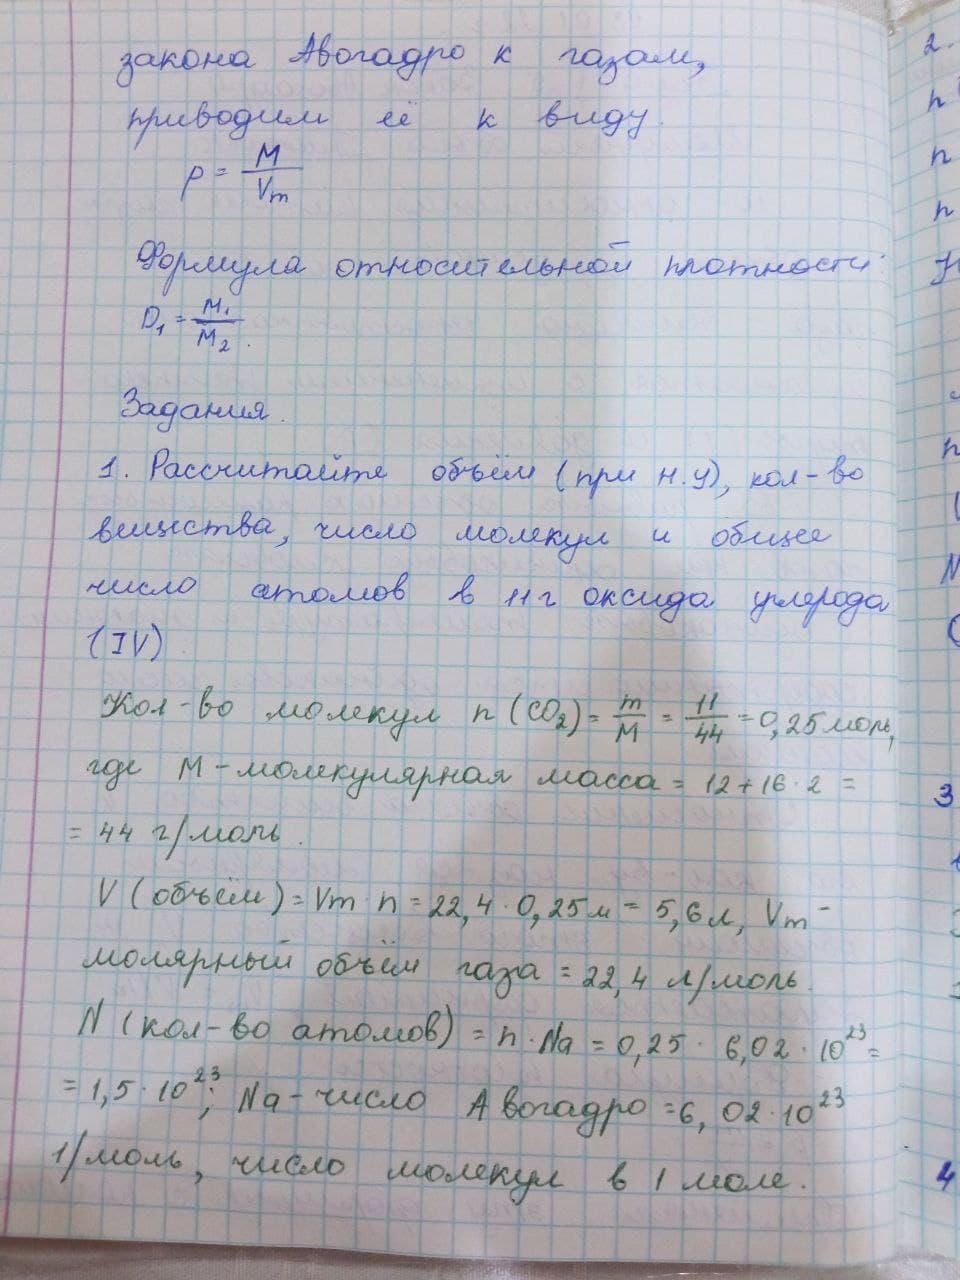 закона Авогадро к газам,
приводим её к виду.
ρ = M / Vm
Формула относительной плотности:
D₁ = M₁ / M₂.
Задания.
1. Рассчитайте объём (при н.у), кол-во
вещества, число молекул и общее
число атомов в 11г оксида углерода
(IV)
Кол-во молекул n (CO₂) = m/M = 11/44 = 0,25 моль,
где M - молекулярная масса = 12 + 16 · 2 =
= 44 г/моль.
V (объём) = Vm · n = 22,4 · 0,25 м = 5,6 л, Vm -
молярный объём газа = 22,4 л/моль.
N (кол-во атомов) = n · Na = 0,25 · 6,02 · 10²³ =
= 1,5 · 10²³; Na - число Авогадро = 6,02 · 10²³
1/моль, число молекул в 1 моле.
2.
n
n
n
3
4